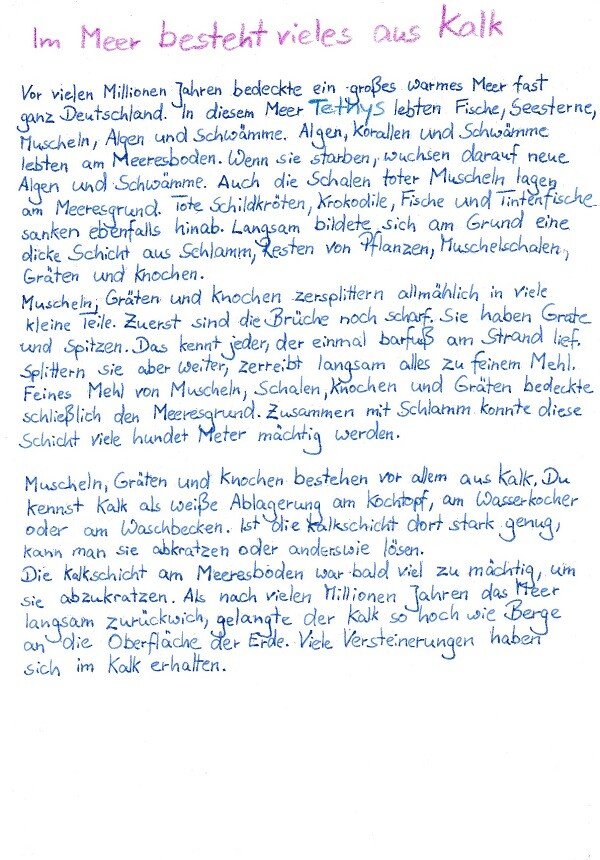 Im Meer besteht vieles aus Kalk
Vor vielen Millionen Jahren bedeckte ein großes warmes Meer fast
ganz Deutschland. In diesem Meer Tethys lebten Fische, Seesterne,
Muscheln, Algen und Schwämme. Algen, Korallen und Schwämme
lebten am Meeresboden. Wenn sie starben, wuchsen darauf neue
Algen und Schwämme. Auch die Schalen toter Muscheln lagen
am Meeresgrund. Tote Schildkröten, Krokodile, Fische und Tintenfische
sanken ebenfalls hinab. Langsam bildete sich am Grund eine
dicke Schicht aus Schlamm, Resten von Pflanzen, Muschelschalen,
Gräten und Knochen.
Muscheln, Gräten und Knochen zersplittern allmählich in viele
kleine Teile. Zuerst sind die Brüche noch scharf. Sie haben Grate
und Spitzen. Das kennt jeder, der einmal barfuß am Strand lief.
Splittern sie aber weiter, zerreibt langsam alles zu feinem Mehl.
Feines Mehl von Muscheln, Schalen, Knochen und Gräten bedeckte
schließlich den Meeresgrund. Zusammen mit Schlamm konnte diese
Schicht viele hundet Meter mächtig werden.
Muscheln, Gräten und Knochen bestehen vor allem aus Kalk. Du
kennst Kalk als weiße Ablagerung am Kochtopf, am Wasserkocher
oder am Waschbecken. Ist die Kalkschicht dort stark genug,
kann man sie abkratzen oder anderswie lösen.
Die Kalkschicht am Meeresboden war bald viel zu mächtig, um
sie abzukratzen. Als nach vielen Millionen Jahren das Meer
langsam zurückwich, gelangte der Kalk so hoch wie Berge
an die Oberfläche der Erde. Viele Versteinerungen haben
sich im Kalk erhalten.